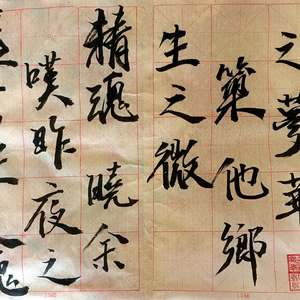 之夢華
築他鄉
生之微
精魂曉余
嘆昨夜之